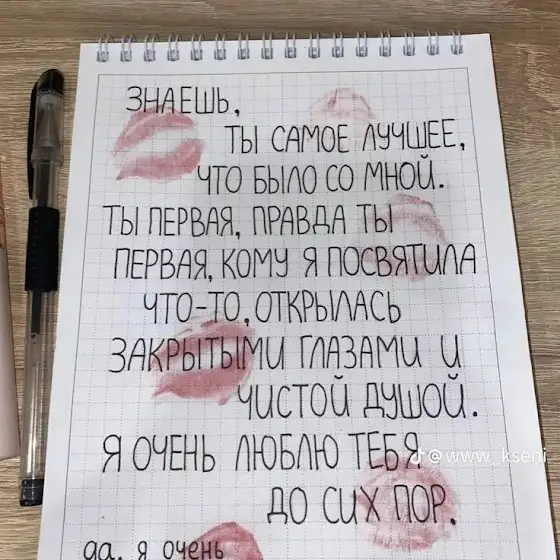 ЗНАЕШЬ,
ТЫ САМОЕ ЛУЧШЕЕ,
ЧТО БЫЛО СО МНОЙ.
ТЫ ПЕРВАЯ, ПРАВДА ТЫ
ПЕРВАЯ, КОМУ Я ПОСВЯТИЛА
ЧТО-ТО, ОТКРЫЛАСЬ
ЗАКРЫТЫМИ ГЛАЗАМИ И
ЧИСТОЙ ДУШОЙ.
Я ОЧЕНЬ ЛЮБЛЮ ТЕБЯ
@www_kseni
ДО СИХ ПОР.
да, я очень